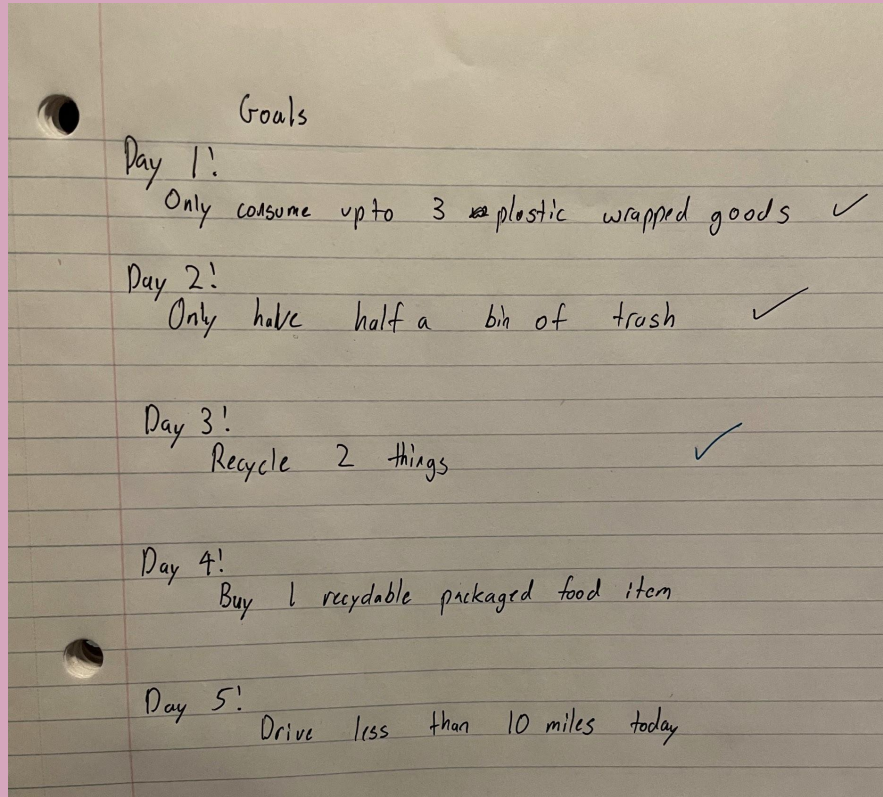 Goals
Day 1!
Only consume up to 3 plastic wrapped goods ✓
Day 2!
Only have half a bin of trash ✓
Day 3!
Recycle 2 things ✓
Day 4!
Buy 1 recyclable packaged food item
Day 5!
Drive less than 10 miles today